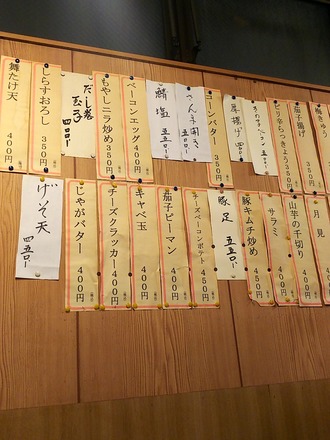 梅きゅう
茄子揚げ 350円
ピリ辛らっきょう 350円
厚揚げ 四〇〇
コーンバター 350円
五五〇
鯖塩 五五〇
ベーコンエッグ 400円
もやしニラ炒め 350円
だし巻玉子 四〇〇
しらすおろし 350円
舞たけ天 400円
月見
山芋の千切り 400円
サラミ 400円
豚キムチ炒め 450円
豚足 五五〇
チーズベーコンポテト 450円
茄子ピーマン 400円
キャベ玉 400円
チーズクラッカー 400円
じゃがバター 400円
げそ天 四五〇